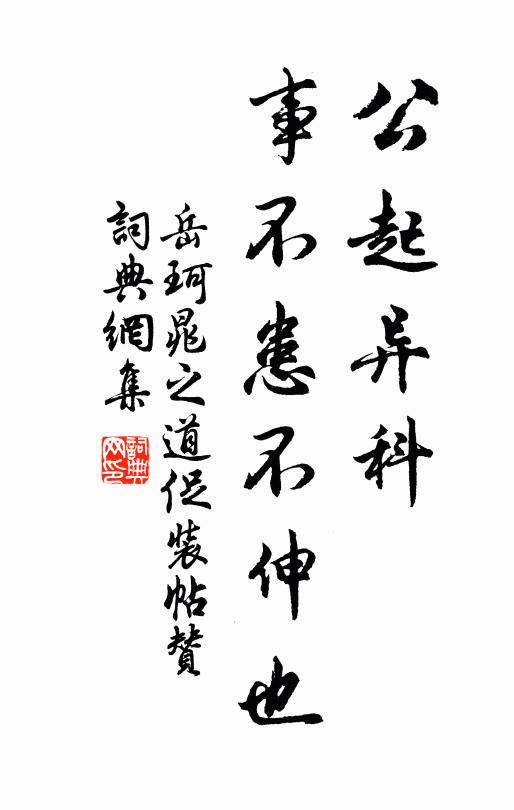 公起异科
事不患不伸也
岳珂晁之道促装帖赞
詞典網集
詞典网印